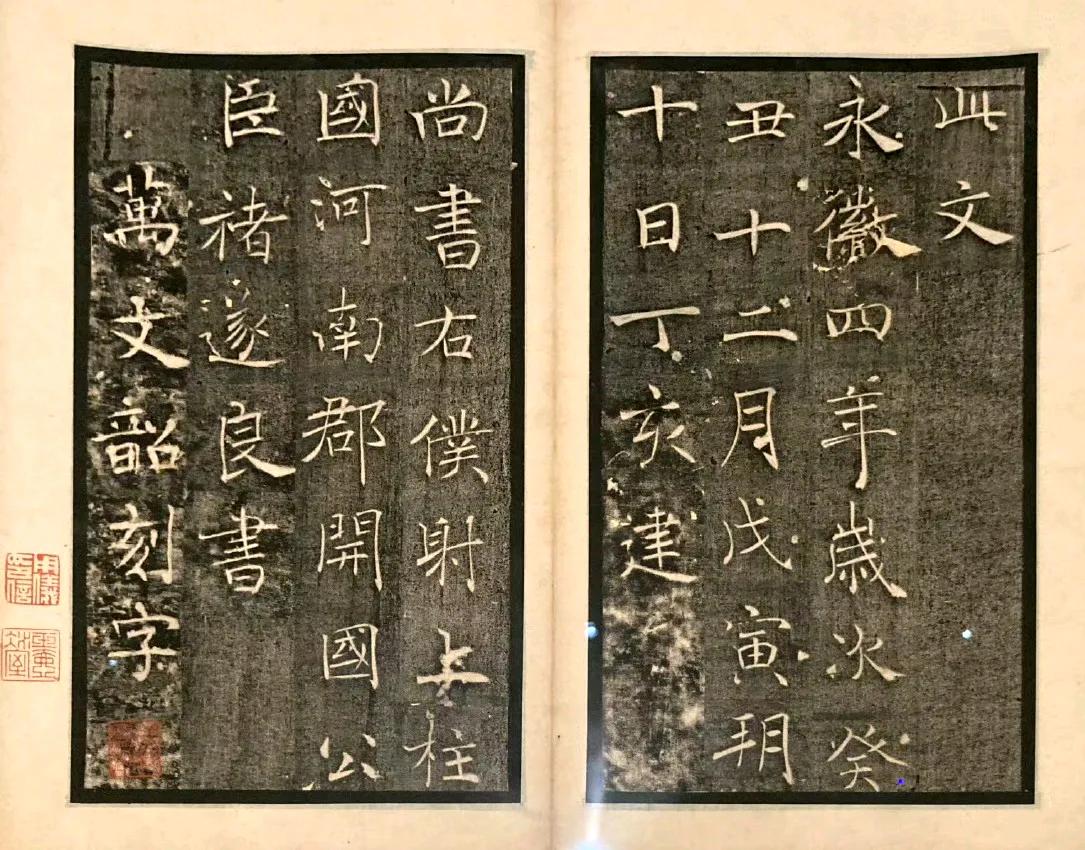 此文
永徽四年歲次癸
丑十二月戊寅玥
十日丁亥建
尚書右僕射上柱
國河南郡開國公
臣褚遂良書
萬文韶刻字